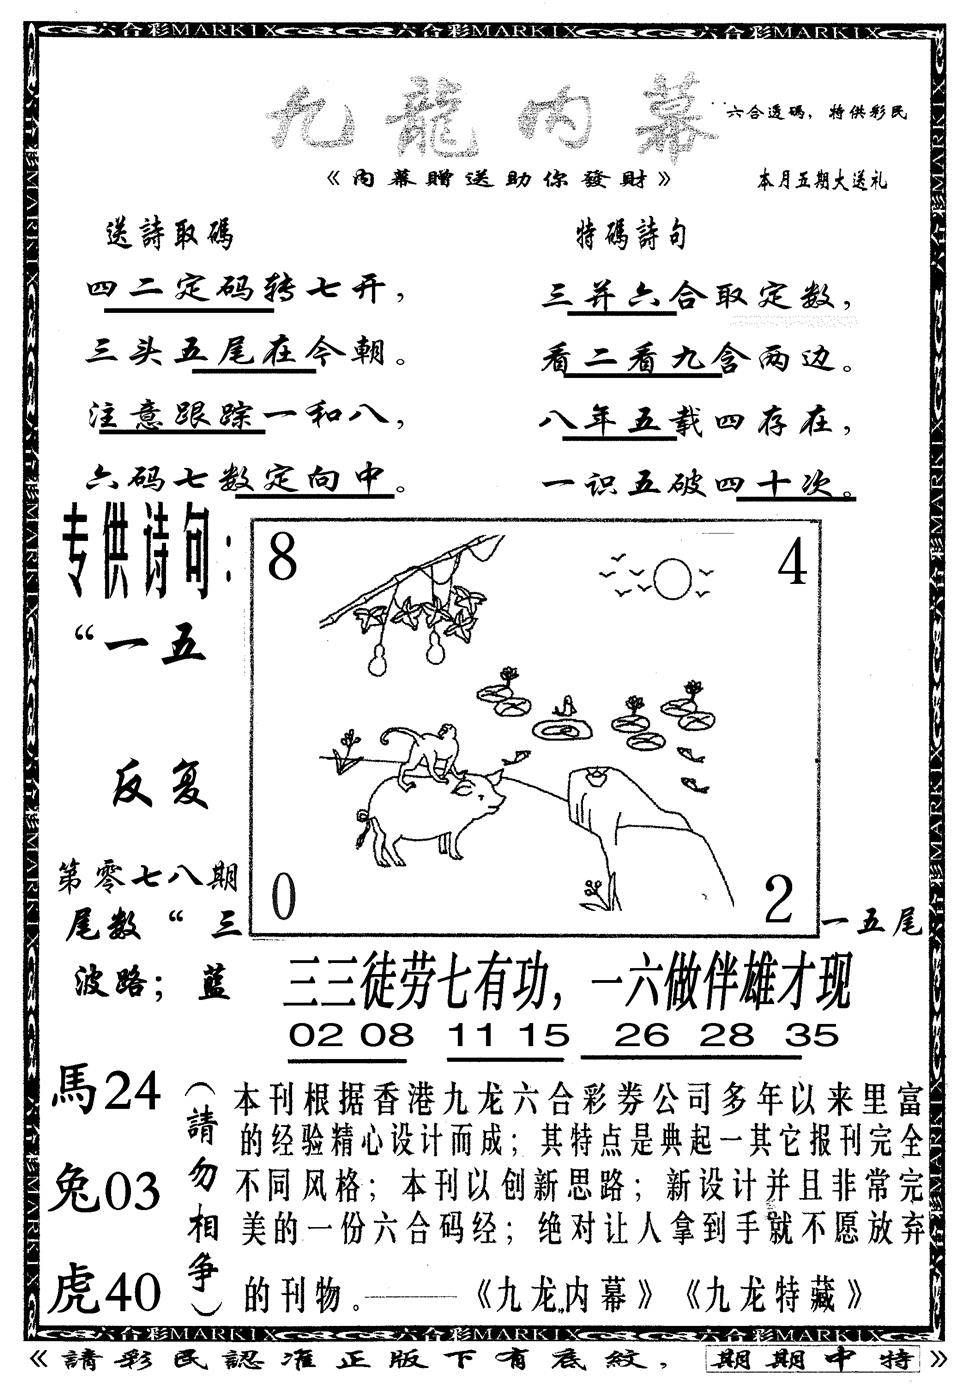 六合彩MARKIX 六合彩MARKIX 六合彩MARKIX
九龍内幕
六合透码，特供彩民
《内幕贈送助你發財》
本月五期大送礼
送詩取碼
四二定码转七开，
三头五尾在今朝。
注意跟踪一和八，
六码七数定向中。
特碼詩句
三并六合取定数，
看二看九含两边。
八年五载四存在，
一识五破四十次。
专供诗句：
“一五
反复
第零七八期
尾数“三
一五尾
波路；蓝
8
4
0
2
三三徒劳七有功，一六做伴雄才现
02 08 11 15 26 28 35
馬24
兔03
虎40
（請勿相争）
本刊根据香港九龙六合彩券公司多年以来里富
的经验精心设计而成；其特点是典起一其它报刊完全
不同风格；本刊以创新思路；新设计并且非常完
美的一份六合码经；绝对让人拿到手就不愿放弃
的刊物。——《九龙内幕》《九龙特藏》
六合彩MARKIX 六合彩MARKIX 六合彩MARKIX
《請彩民認准正版下有底紋，期期中特》